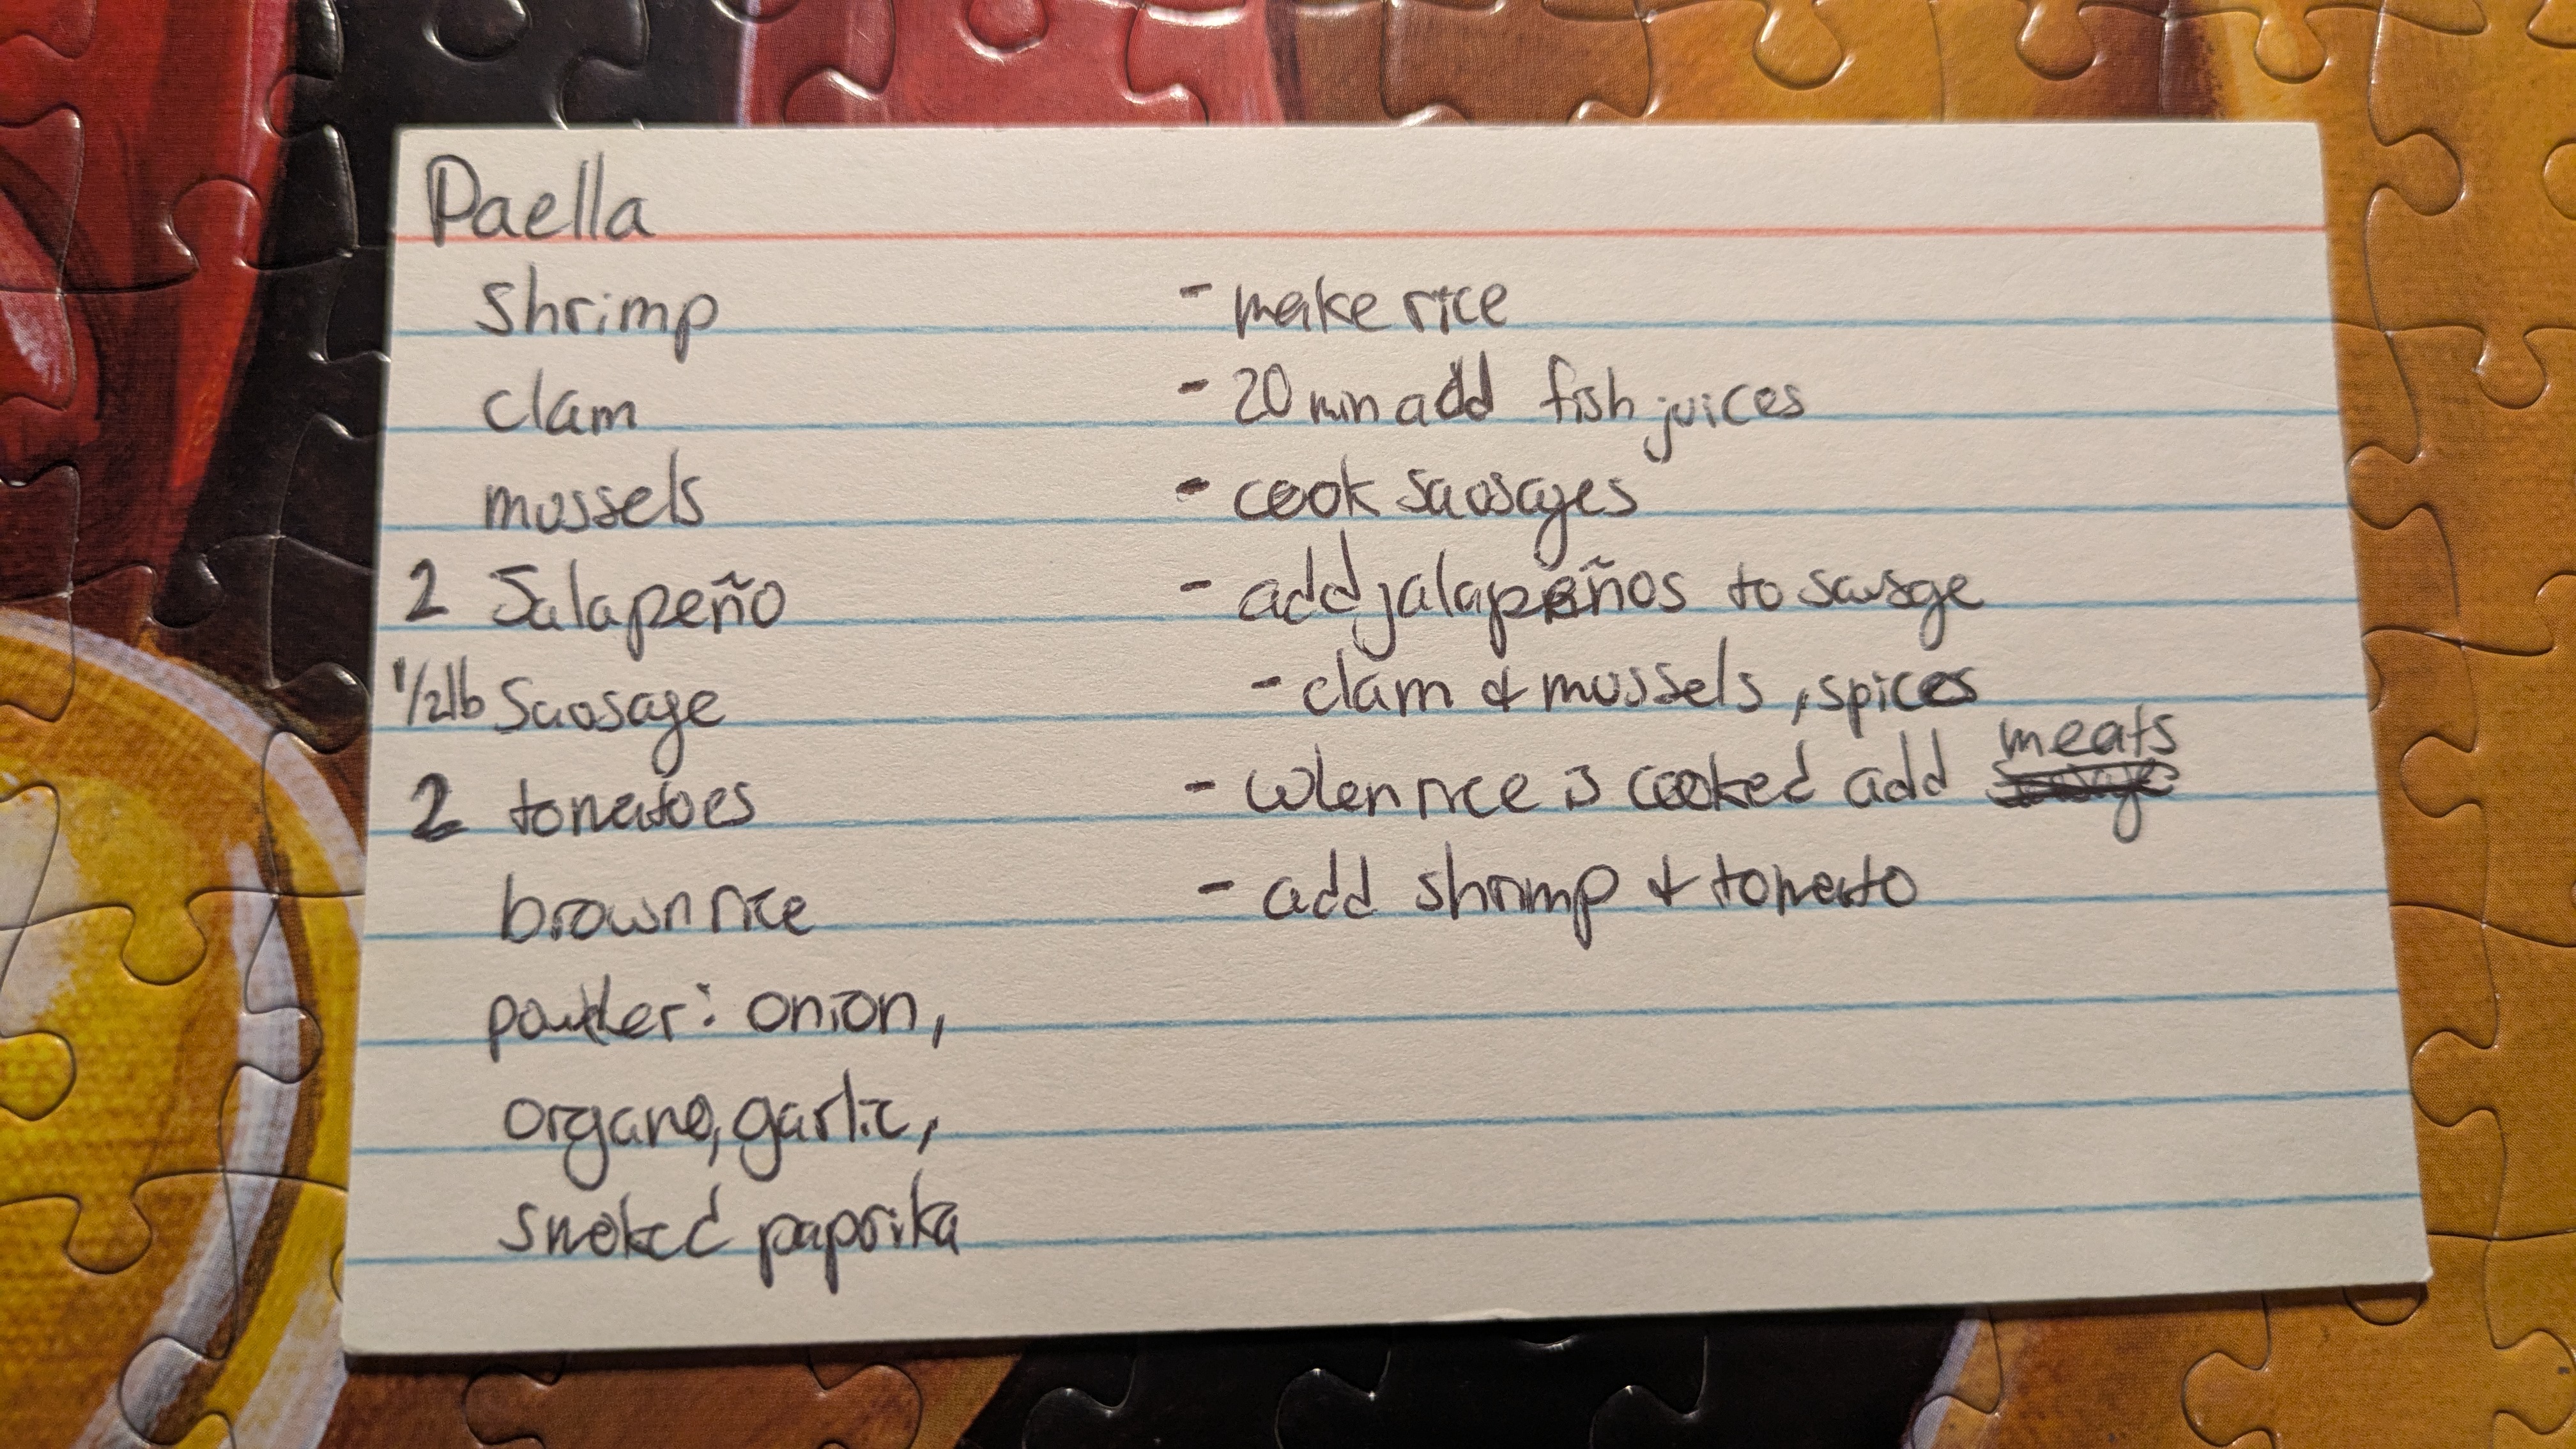 Paella
shrimp
clam
mussels
2 Jalapeño
1/2lb Sausage
2 tomatoes
brown rice
powder: onion,
organo, garlic,
smoked paprika
- make rice
- 20 min add fish juices
- cook sausages
- add jalapeños to sausge
- clam & mussels, spices
- when rice is cooked add meats
- add shrimp & tomato